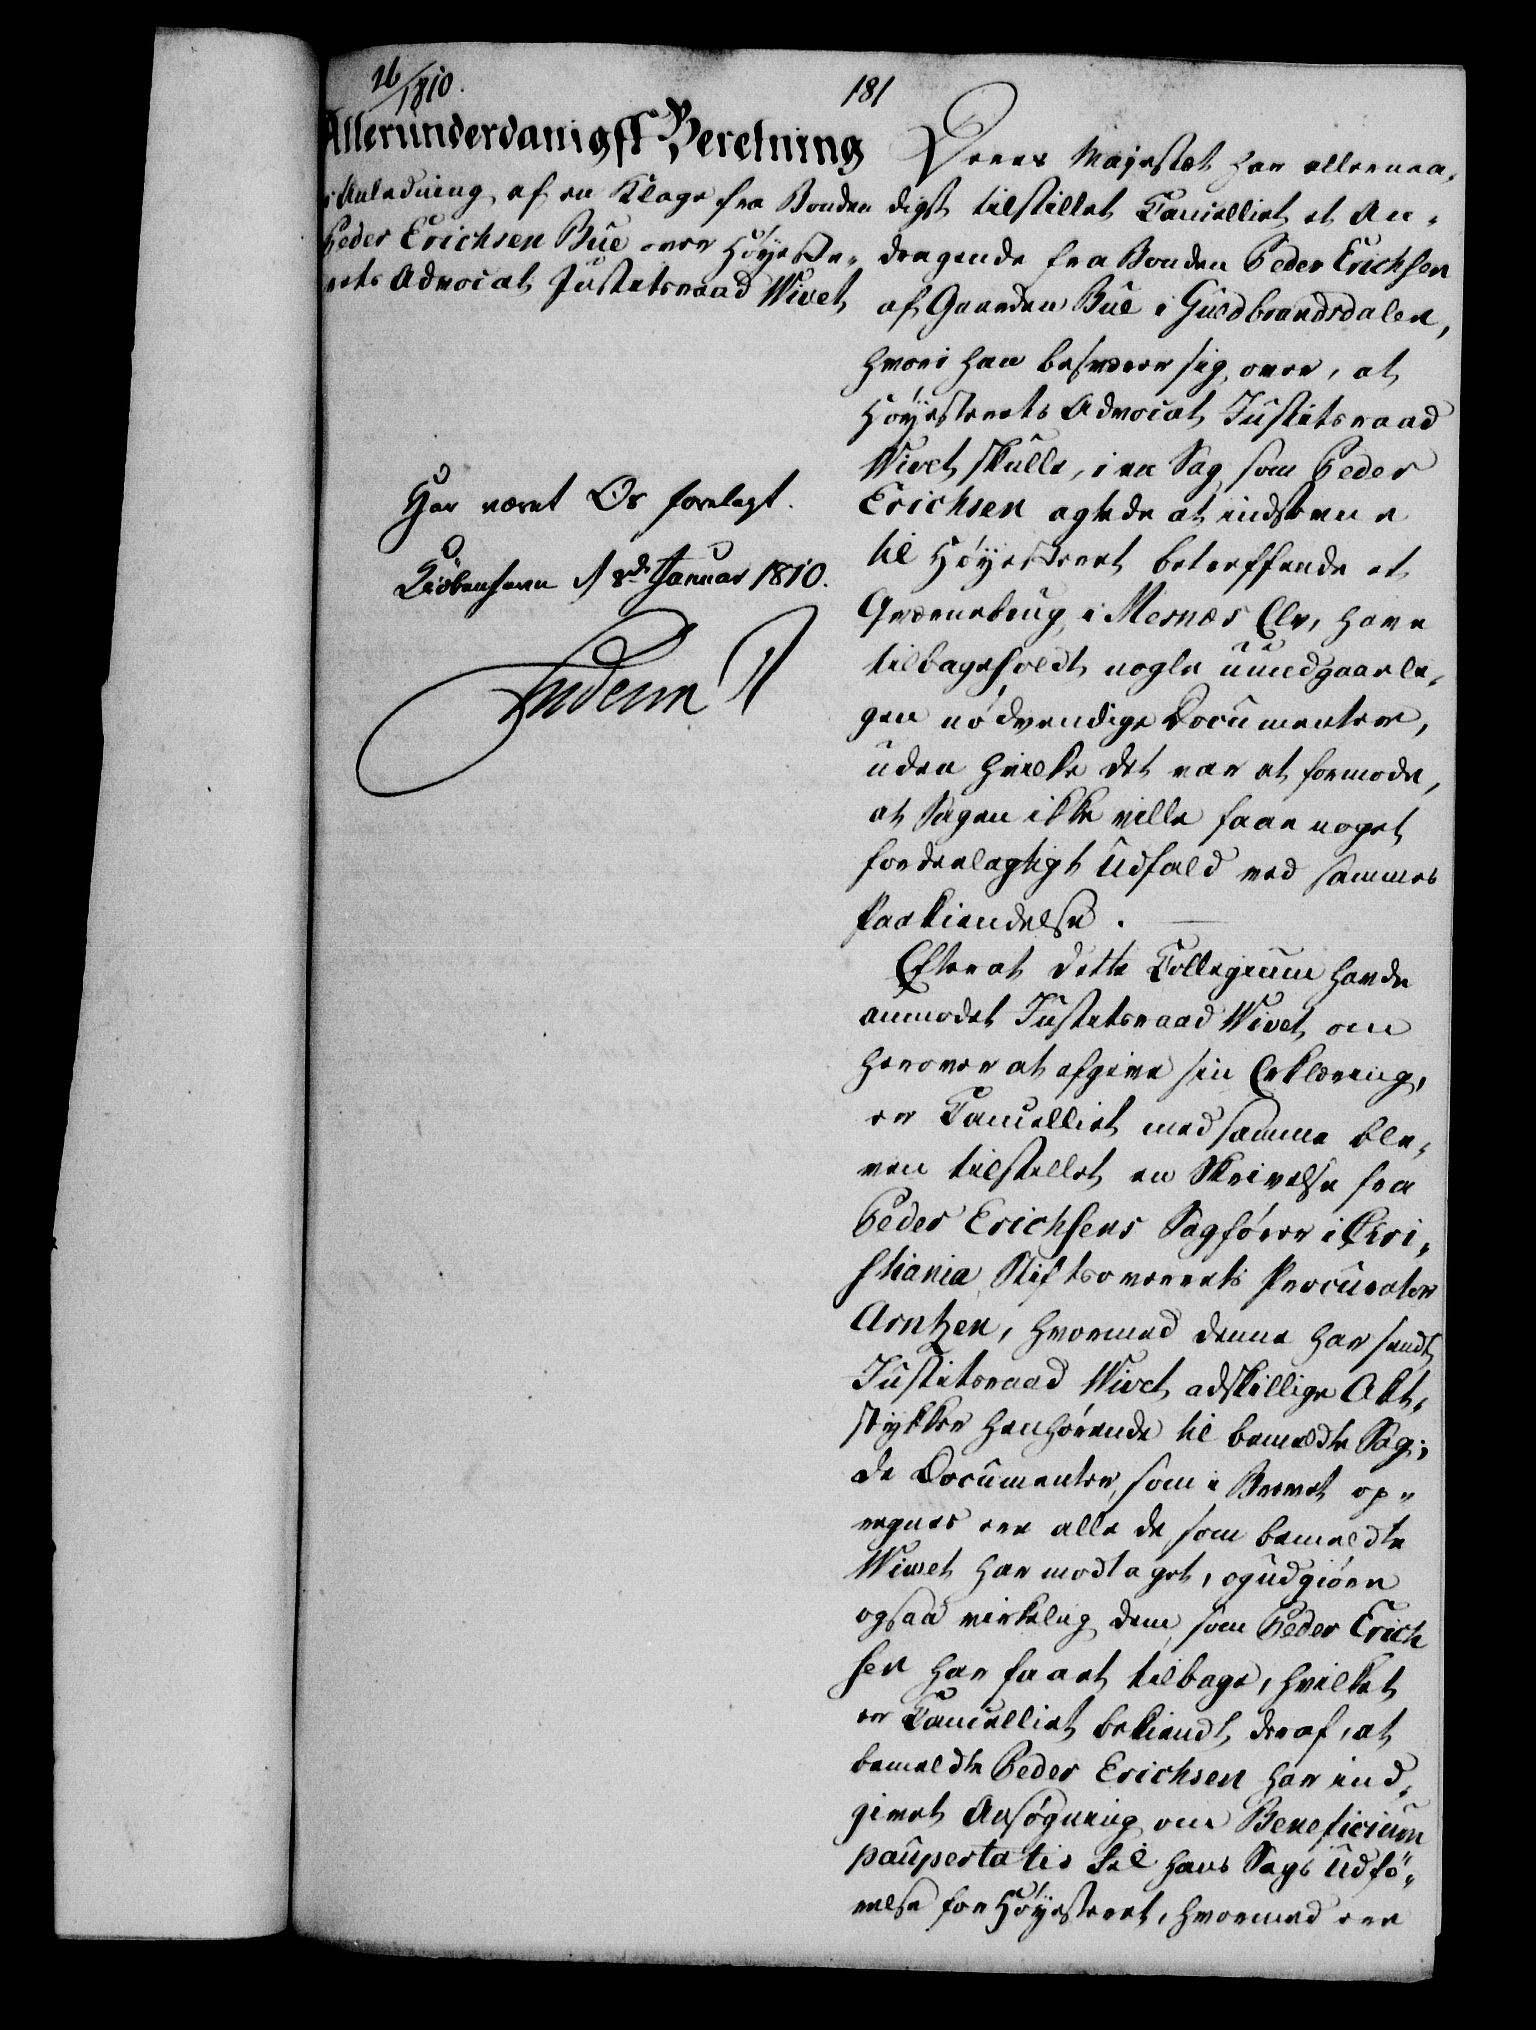 26/1810.
181
Allerunderdanigst Beretning
i Anledning af en Klage fra Bonden
Peder Erichsen Bue over Høyeste-
rets Advocat Justitsraad Wivet
Har været Os forelagt.
Kiöbenhavn d 8de Januar 1810.
Deres Majestæt har allernaa-
digst tilstillet Cancelliet et An-
dragende fra Bonden Peder Erichsen
af Gaarden Bue i Guldbrandsdalen,
hvori han besværer sig over, at
Høyesterets Advocat Justitsraad
Wivet skulle, i en Sag som Peder
Erichsen agtede at indstevne
til Høyesteret betreffende et
Qværnebrug i Mesnæs Elv, have
tilbageholdt nogle uundgaaeli-
gen nødvendige Documenter,
uden hvilke det var at formode,
at Sagen ikke ville faae noget
fordeelagtigt Udfald ved sammes
Paakiendelse.
Efter at dette Collegium havde
anmodet Justitsraad Wivet om
herover at afgive sin Erklæring,
er Cancelliet med samme ble-
ven tilstillet en Skrivelse fra
Peder Erichsens Sagfører i Chri-
stiania, Stiftsoverrets Procurator
Arntzen, hvormed denne har sendt
Justitsraad Wivet adskillige Akt-
stykker henhørende til bemeldte Sag;
de Documenter, som i Brevet op-
regnes ere alle de som bemeldte
Wivet har modtaget, og udgiøre
ogsaa virkelig dem, som Peder Erich
sen har faaet tilbage, hvilket
er Cancelliet bekiendt deraf, at
bemeldte Peder Erichsen har ind-
givet Ansøgning om Beneficium
paupertatis til hans Sags Udfø-
relse for Høyesteret, hvormed ere